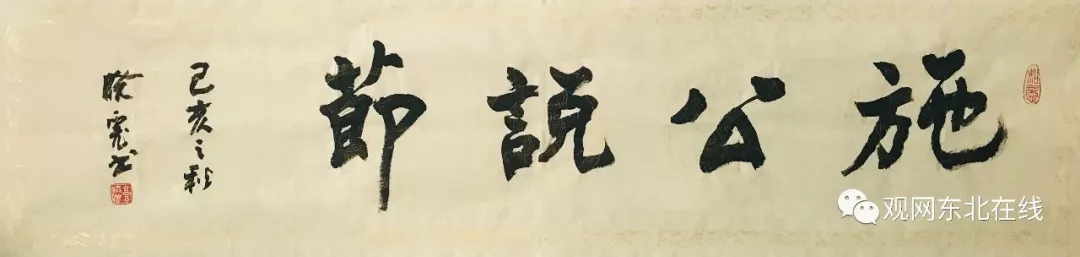 施公説節
己亥之秋
观网东北在线